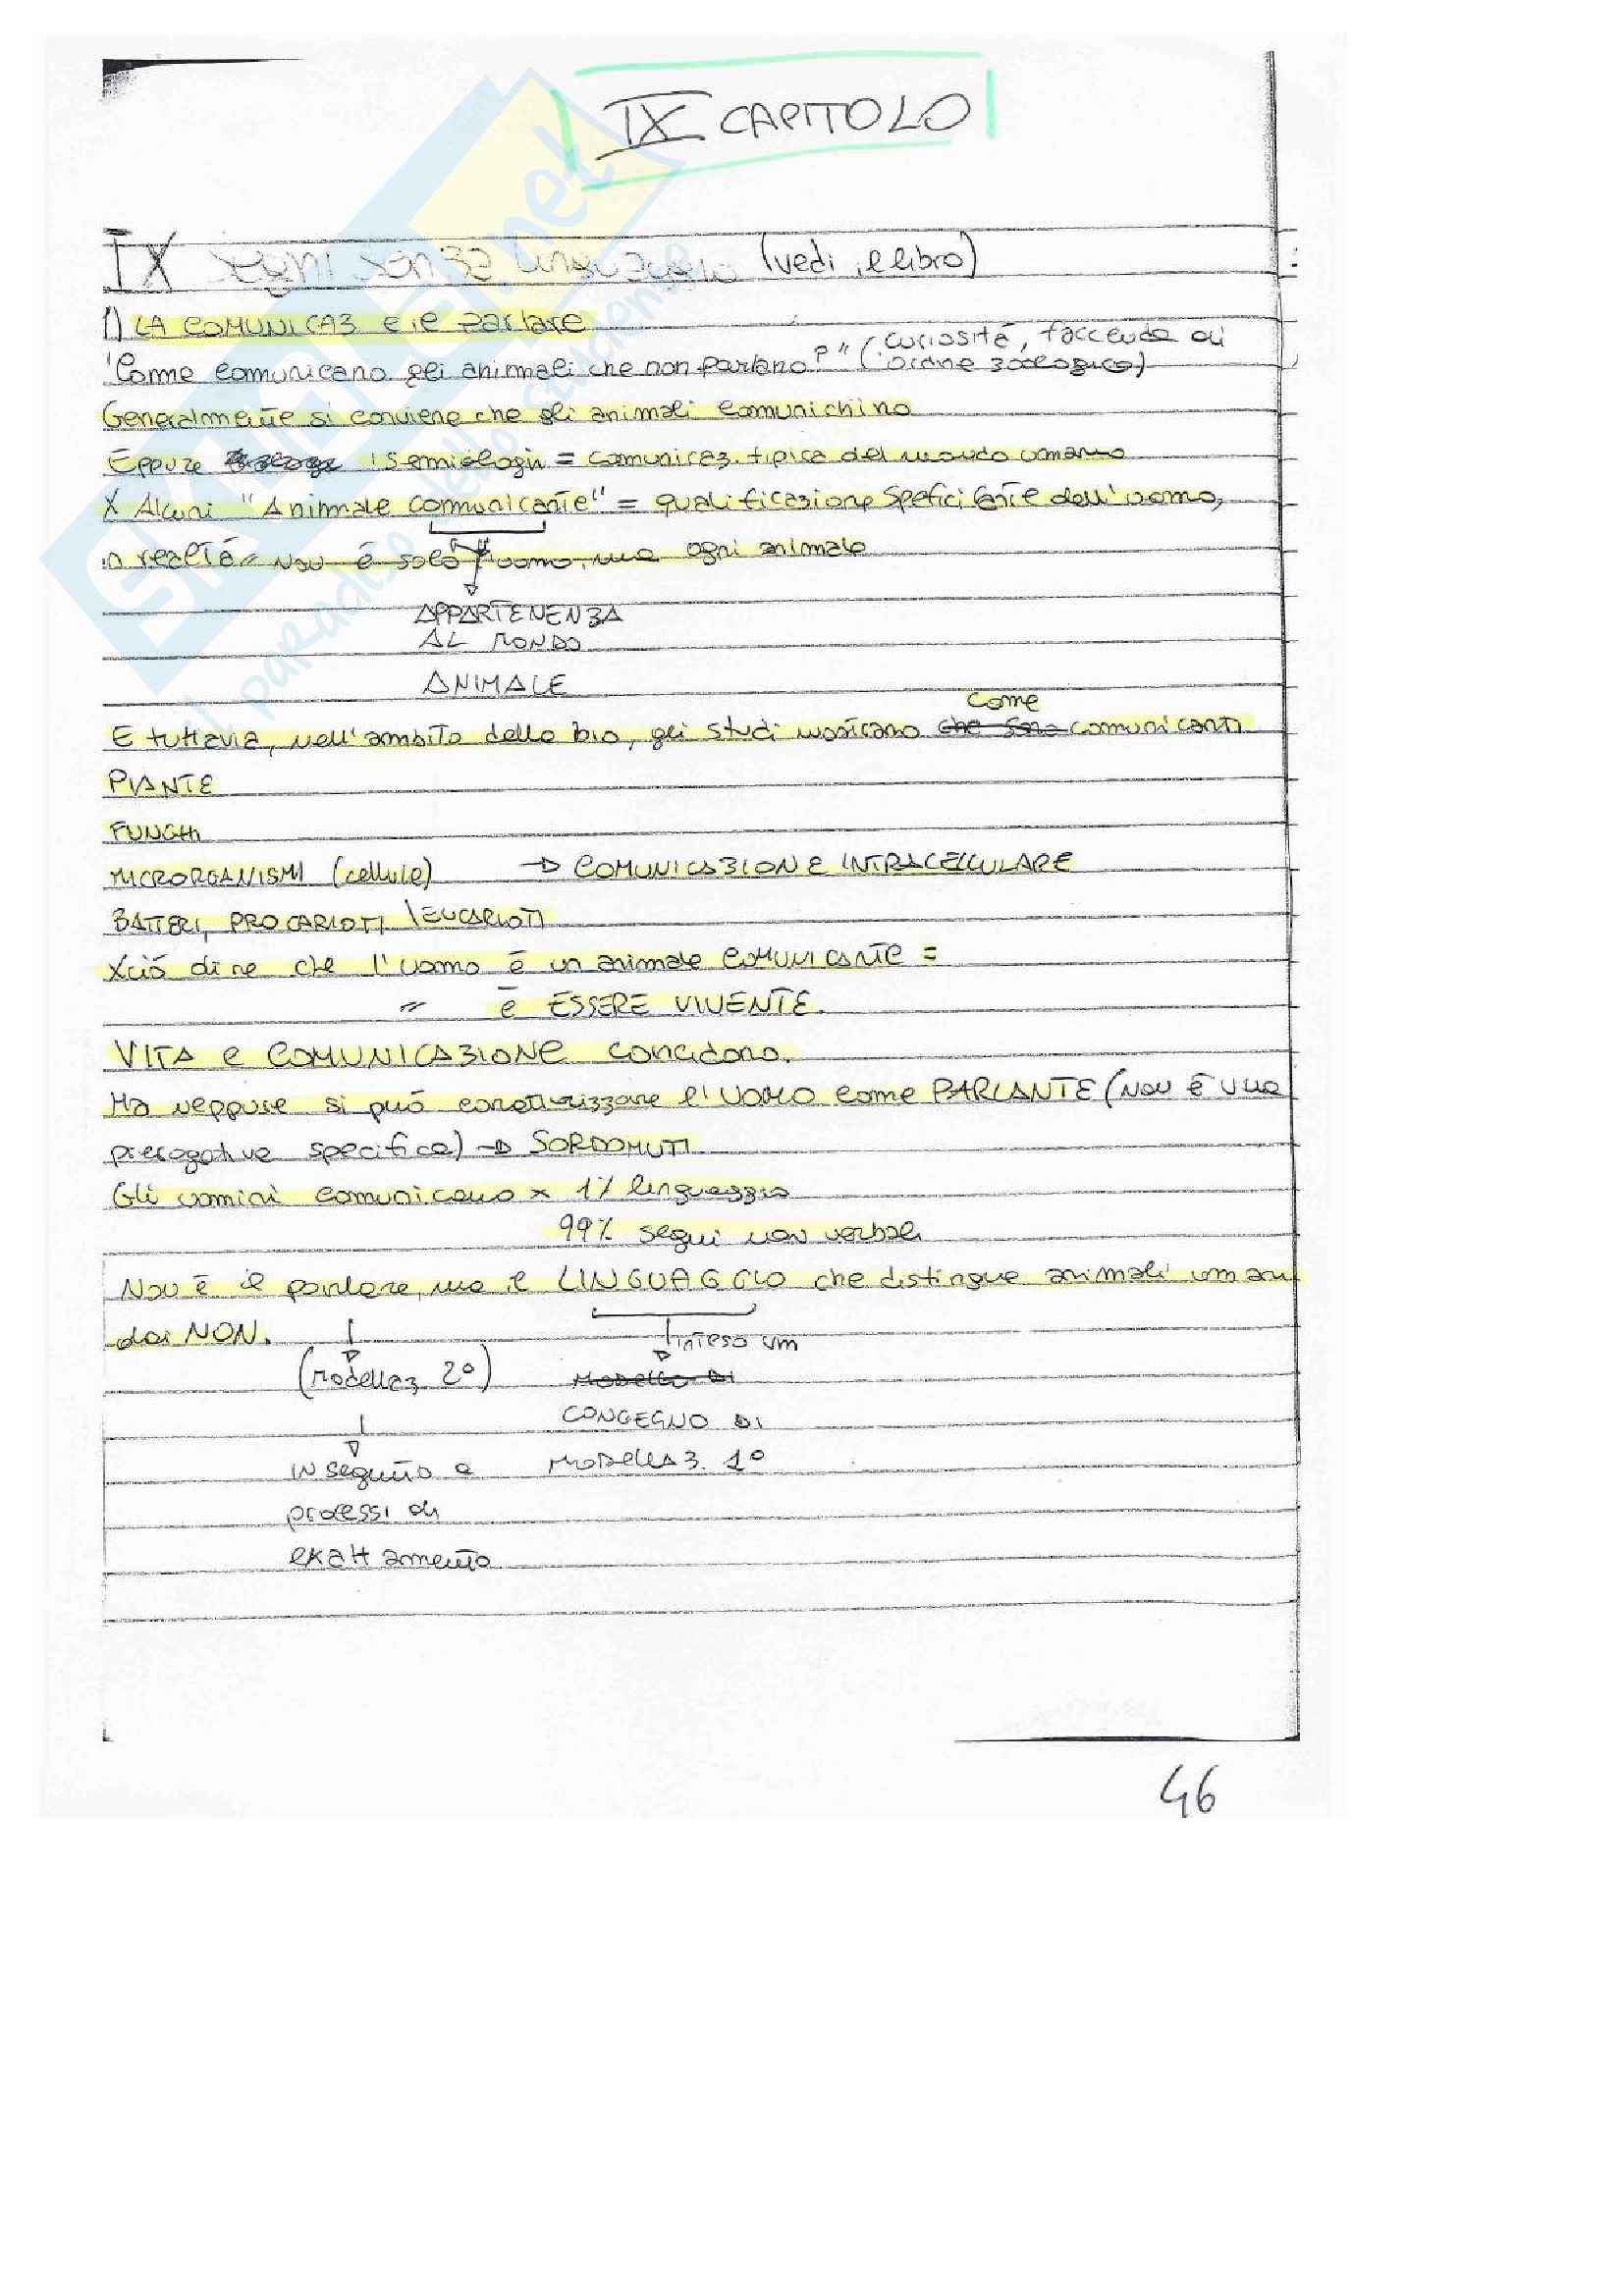 IX CAPITOLO
IX Segni senza linguaggio (vedi il libro)
1) LA COMUNICAZ e il parlare
"Come comunicano gli animali che non parlano?" (curiosità, faccenda di
ordine zoologico)
Generalmente si conviene che gli animali comunichino
Eppure semiologia = comunicaz. tipica del mondo umano
X Alcuni "Animale comunicante" = qualificazione specificante dell'uomo,
in realtà Non è solo uomo, ma ogni animale
APPARTENENZA
AL MONDO
ANIMALE
come
E tuttavia, nell'ambito della bio, gli studi mostrano che sono comunicanti
PIANTE
FUNGHI
MICRORGANISMI (cellule) → COMUNICAZIONE INTRACELLULARE
BATTERI, PROCARIOTI \EUCARIOTI
Xciò dire che l'uomo è un animale COMUNICANTE =
= è ESSERE VIVENTE.
VITA e COMUNICAZIONE coincidono.
Ma neppure si può caratterizzare l'UOMO come PARLANTE (Non è una
prerogativa specifica) → SORDOMUTI
Gli uomini comunicano x 1% linguaggio
99% segni non verbali
Non è il parlare, ma il LINGUAGGIO che distingue animali umani
dai NON.
inteso um
(Modellaz 2°) MODELLO DI
CONGEGNO DI
in seguito a MODELLAZ. 1°
processi di
exattamento
46
SKUOLA.net
il paradiso dello studente